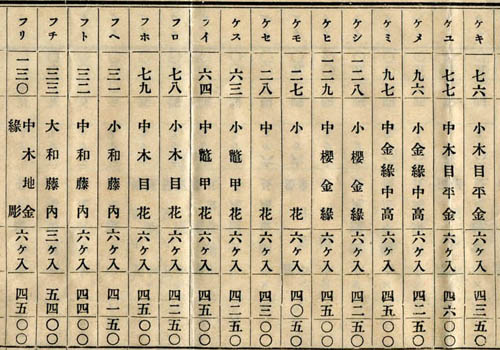 ケキ 七六 小木目平金 六ヶ入 四三五〇
ケユ 七七 中木目平金 六ヶ入 四六〇〇
ケメ 九六 小金緣中高 六ヶ入 四二五〇
ケミ 九七 中金緣中高 六ヶ入 四五〇〇
ケシ 一二八 小櫻金緣 六ヶ入 四二五〇
ケヒ 一二九 中櫻金緣 六ヶ入 四五〇〇
ケモ 二七 小花 六ヶ入 四〇五〇
ケセ 二八 中花 六ヶ入 四三〇〇
ケス 六三 小鼈甲花 六ヶ入 四二五〇
フイ 六四 中鼈甲花 六ヶ入 四五〇〇
フロ 七八 小木目花 六ヶ入 四二五〇
フホ 七九 中木目花 六ヶ入 四五〇〇
フヘ 三一 小和藤內 六ヶ入 四一五〇
フト 三二 中和藤內 六ヶ入 四四〇〇
フチ 三三 大和藤內 三ヶ入 五四〇〇
フリ 一三〇 中木地金緣彫 六ヶ入 四五〇〇